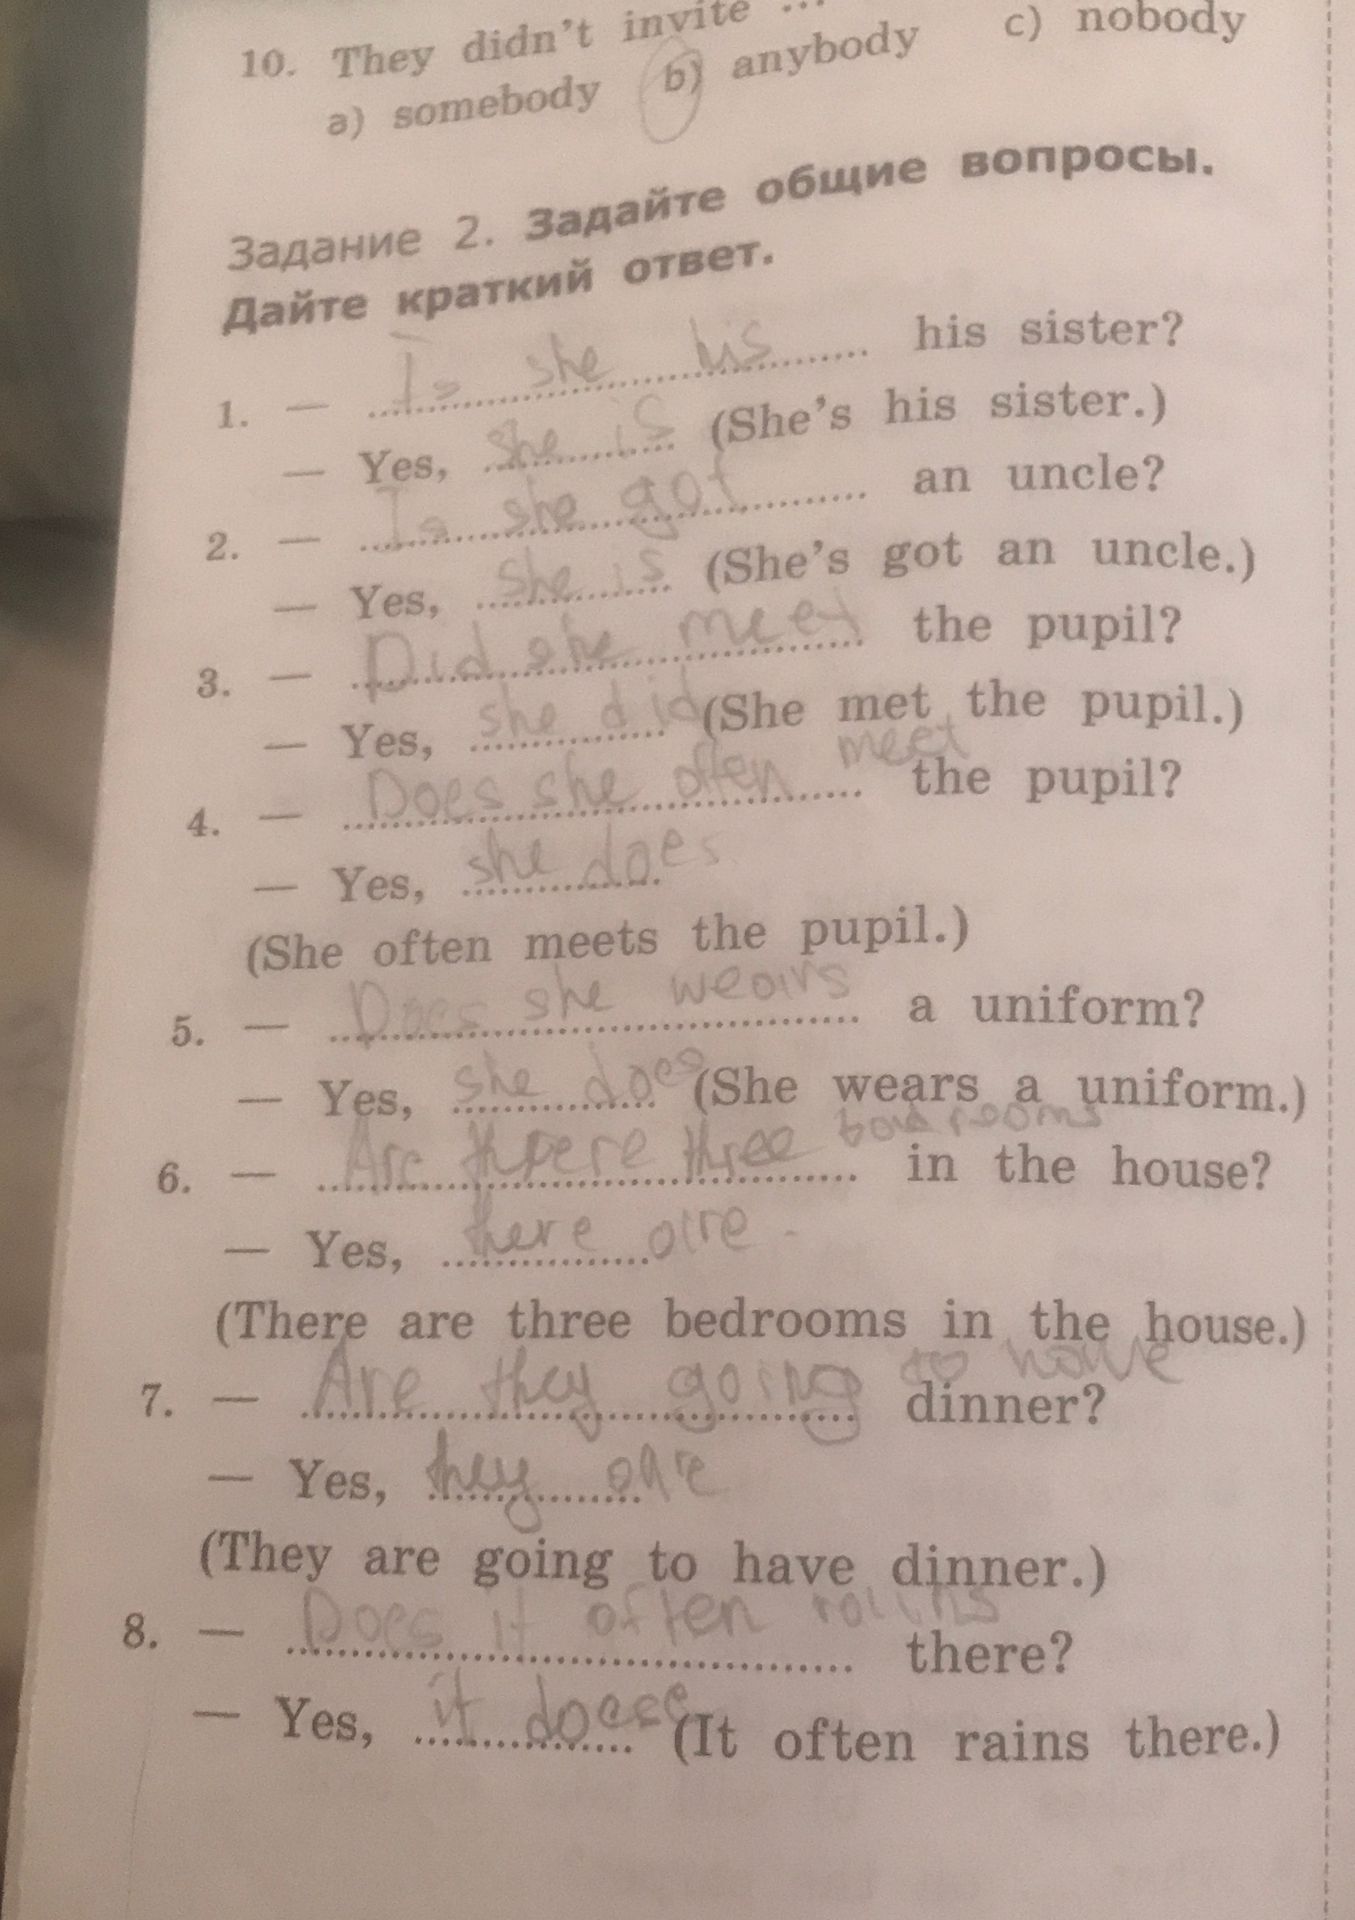 10. They didn't invite ...
a) somebody b) anybody c) nobody
Задание 2. Задайте общие вопросы.
Дайте краткий ответ.
1. — Is she his his sister?
— Yes, she is (She's his sister.)
2. — Is she got an uncle?
— Yes, she is (She's got an uncle.)
3. — Did she meet the pupil?
— Yes, she did (She met the pupil.)
4. — Does she often meet the pupil?
— Yes, she does
(She often meets the pupil.)
5. — Does she wears a uniform?
— Yes, she does (She wears a uniform.)
6. — Are there three bedrooms in the house?
— Yes, there are.
(There are three bedrooms in the house.)
7. — Are they going to have dinner?
— Yes, they are
(They are going to have dinner.)
8. — Does it often rains there?
— Yes, it does (It often rains there.)